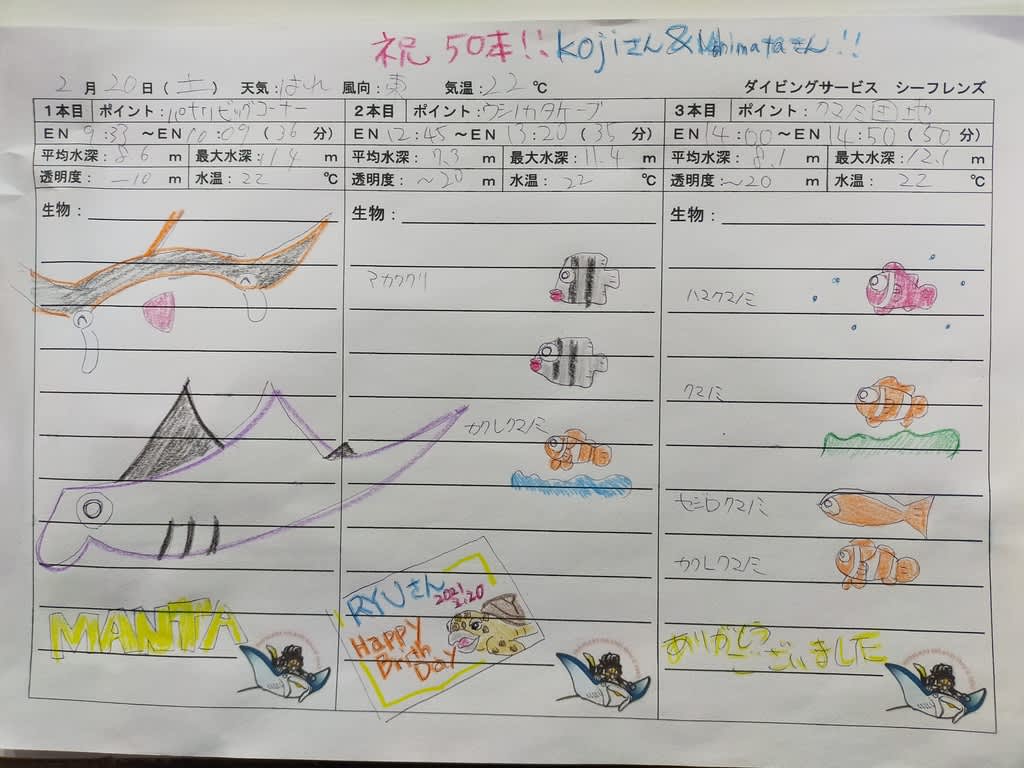 祝 50本!! Kojiさん & himataさん!!
2月20日(土) 天気:はれ 風向:東 気温:22℃ ダイビングサービス シーフレンズ
1本目 ポイント: ビッグコーナー
EN 9:33 ~EN 10:09 (36分)
平均水深: 8.6 m 最大水深: 14 m
透明度: ~10 m 水温: 22 ℃
生物:
MANTA
2本目 ポイント:
EN 12:45 ~EN 13:20 (35分)
平均水深: 7.3 m 最大水深: 11.4 m
透明度: ~20 m 水温: 22 ℃
生物:
カクレクマノミ
RYUさん
2021
2.20
Happy
Brith
Day
3本目 ポイント: クマノミ団地
EN 14:00 ~EN 14:50 (50分)
平均水深: 8.1 m 最大水深: 12.1 m
透明度: ~20 m 水温: 22 ℃
生物:
ハマクマノミ
クマノミ
セジロクマノミ
カクレクマノミ
ありがとうございました